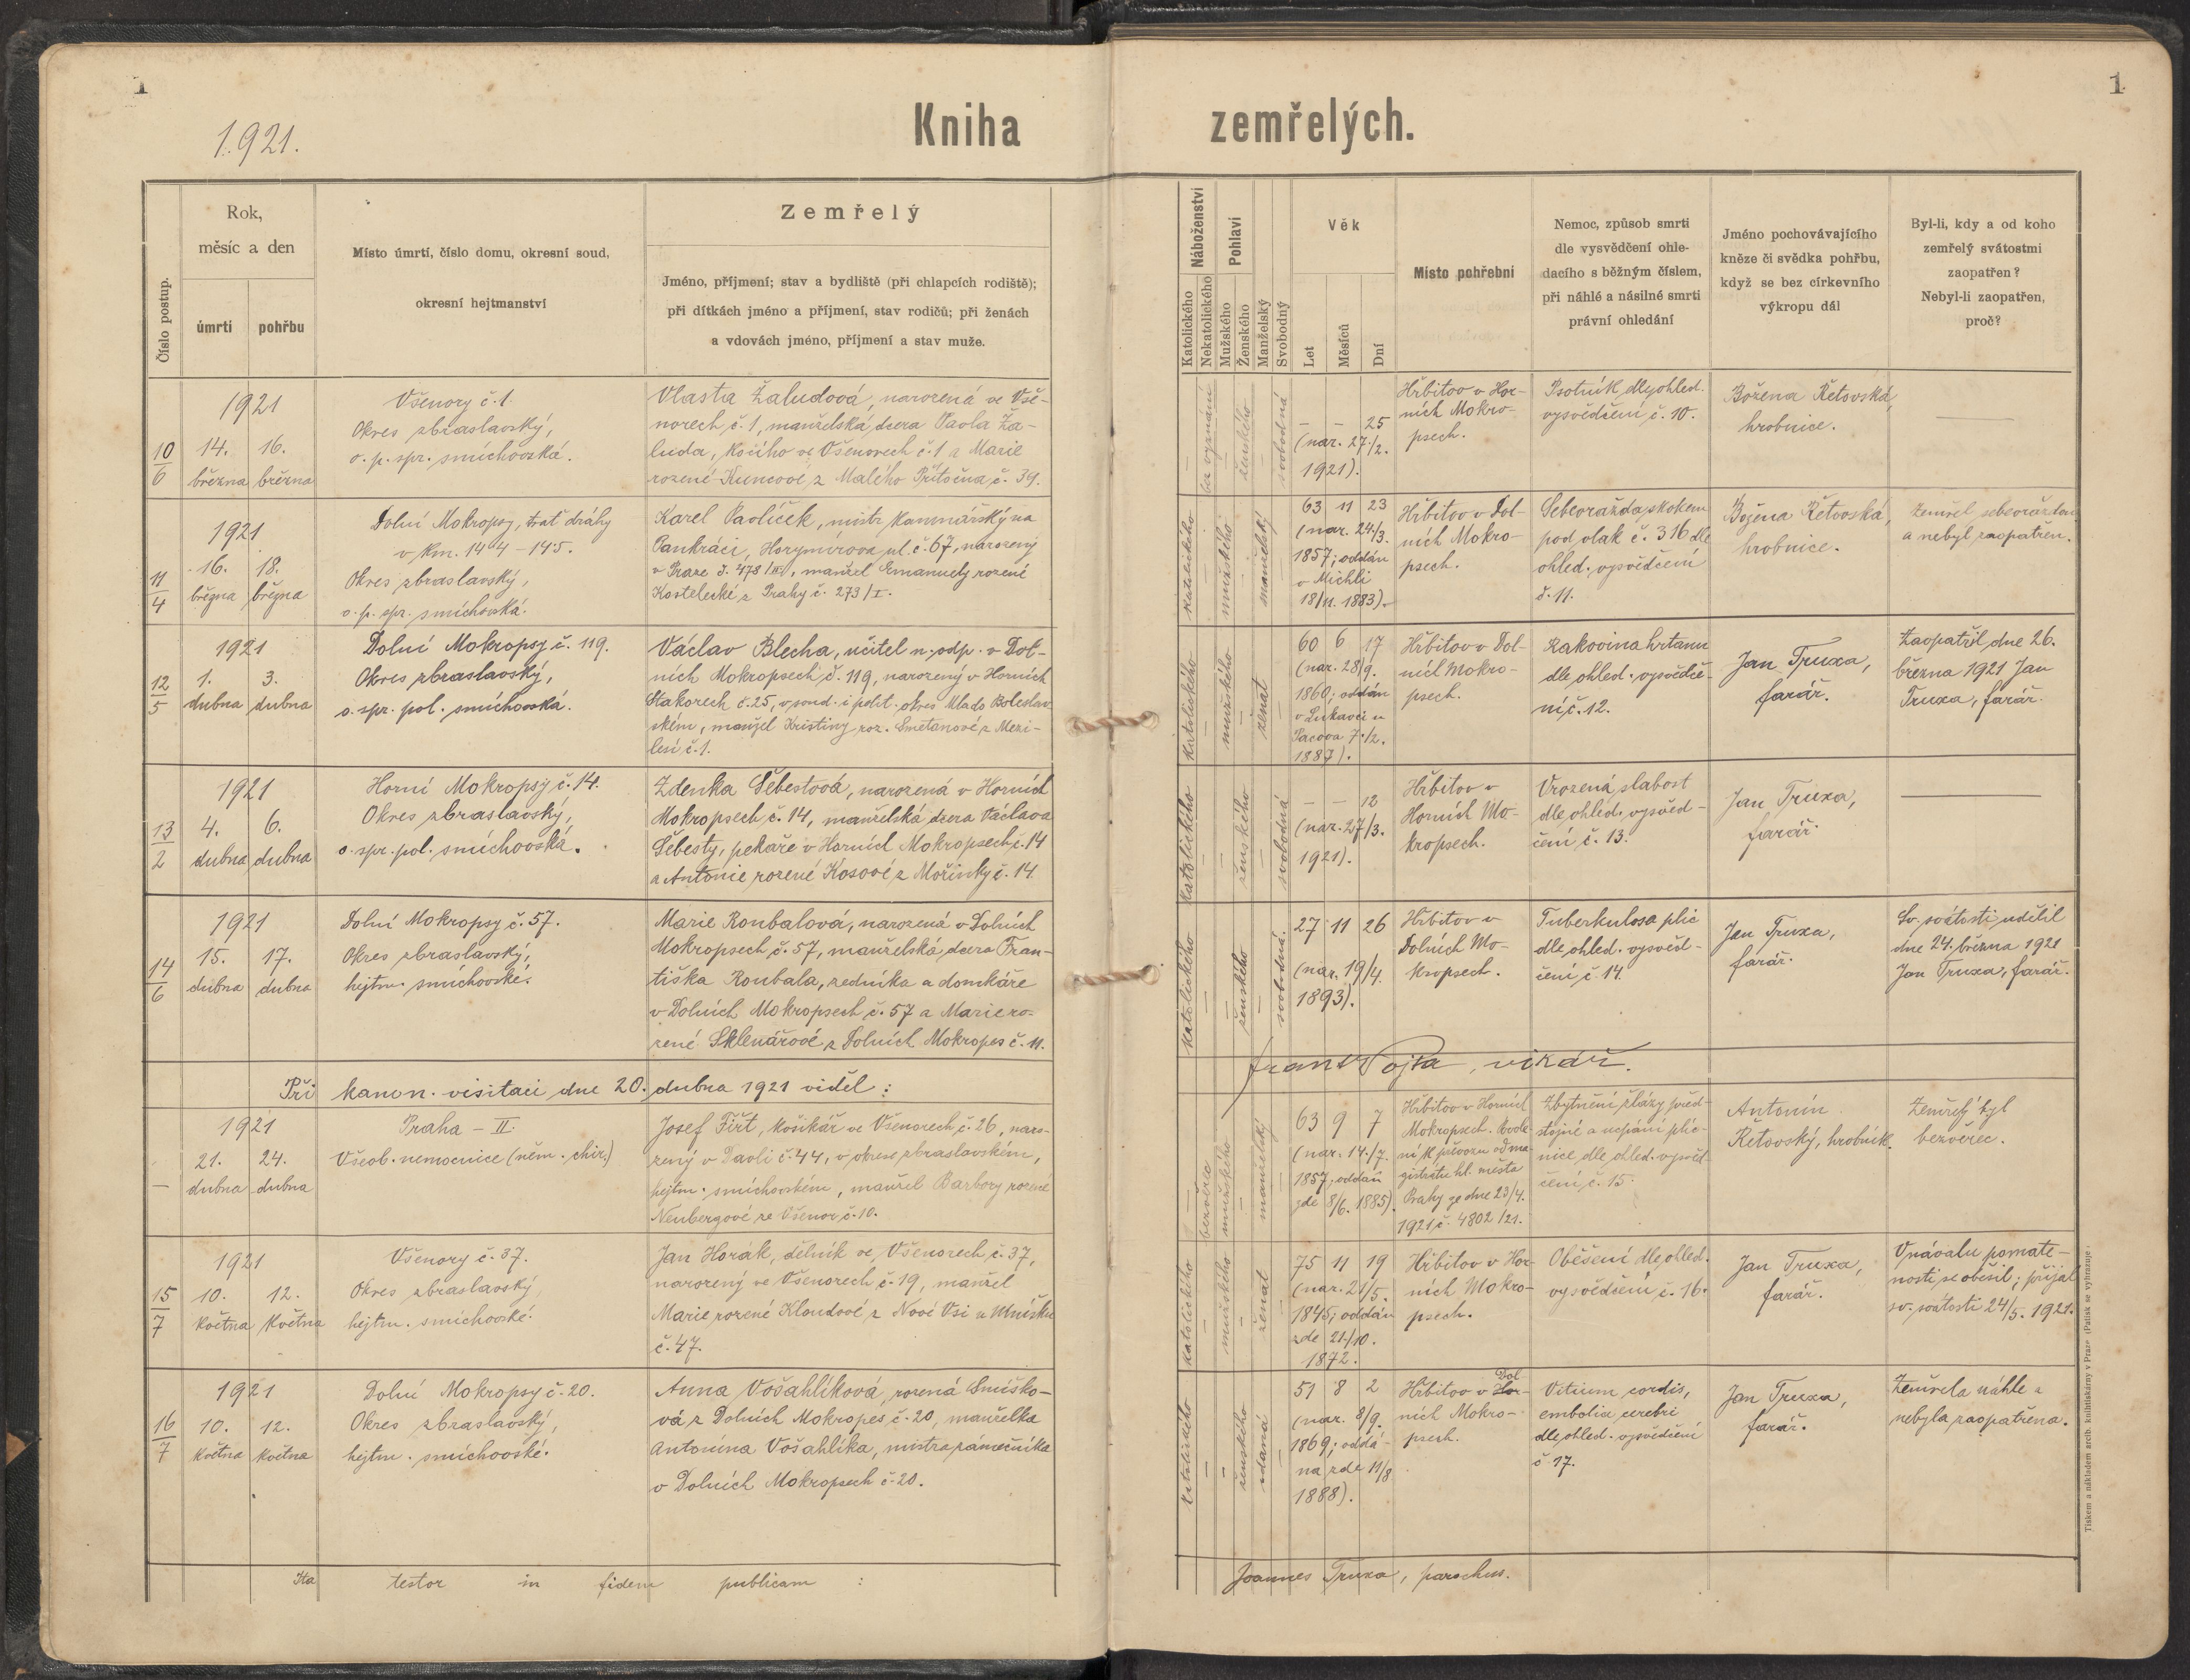 1
1
1921.
Kniha
zemřelých.
Číslo postup.
Rok,
měsíc a den
úmrtí
pohřbu
Místo úmrtí, číslo domu, okresní soud,
okresní hejtmanství
Zemřelý
Jméno, příjmení; stav a bydliště (při chlapcích rodiště);
při dítkách jméno a příjmení, stav rodičů; při ženách
a vdovách jméno, příjmení a stav muže.
Náboženství
Katolického
Nekatolického
Pohlaví
Mužského
Ženského
Manželský
Svobodný
Věk
Let
Měsíců
Dní
Místo pohřební
Nemoc, způsob smrti
dle vysvědčení ohle-
dacího s běžným číslem,
při náhlé a násilné smrti
právní ohledání
Jméno pochovávajícího
kněze či svědka pohřbu,
když se bez církevního
výkropu dál
Byl-li, kdy a od koho
zemřelý svátostmi
zaopatřen?
Nebyl-li zaopatřen,
proč?
10
6
1921
14. 16.
března března
Všenory č. 1.
Okres zbraslavský,
o. p. spr. smíchovská.
Vlasta Žaludová, narozená ve Vše-
norech č. 1, manželská dcera Pavla Ža-
luda, ve Všenorech č. 1 a Marie
rozené Kuncové z Malého Přítočna č. 39.
—
bez vyznání
—
ženského
—
svobodná
– – 25
(nar. 27./2.
1921).
Hřbitov v Hor-
ních Mokro-
psech.
Psotník, dle ohled.
vysvědčení č. 10.
Božena Řetovská,
hrobnice.
—
11
4
1921
16. 18.
března března
Dolní Mokropsy, trať dráhy
v km. 144 – 145.
Okres zbraslavský,
o. p. spr. smíchovská.
Karel Pavlíček, mistr kamnářský na
Pankráci, Horymírova ul. č. 67, narozený
v Praze č. 478/III, manžel Emanuely rozené
Kostelecké z Prahy č. 273/I.
katolického
—
mužského
—
manželský
—
63 11 23
(nar. 24/3.
1857; oddán
v Michli
18/11. 1883).
Hřbitov v Dol-
ních Mokro-
psech.
Sebevražda, skokem
pod vlak č. 316 dle
ohled. vysvědčení
č. 11.
Božena Řetovská,
hrobnice.
Zemřel sebevraždou
a nebyl zaopatřen.
12
5
1921
1. 3.
dubna dubna
Dolní Mokropsy č. 119.
Okres zbraslavský,
o. spr. pol. smíchovská.
Václav Blecha, učitel n. odp. v Dol-
ních Mokropsech č. 119, narozený v Horních
Stakorech č. 25, v soud. i polit. okres Mlado Boleslav
ském, manžel Kristiny roz. Smetanové z Mezi-
lesí č. 1.
katolického
—
mužského
—
ženat
—
60 6 17
(nar. 28/9.
1860; oddán
v Lukavci u
Pacova 7./2.
1887).
Hřbitov v Dol-
ních Mokro-
psech.
Rakovina hrtanu
dle ohled. vysvědče-
ní č. 12.
Jan Truxa,
farář.
Zaopatřil dne 26.
března 1921 Jan
Truxa, farář.
13
2
1921
4. 6.
dubna dubna
Horní Mokropsy č. 14.
Okres zbraslavský,
o. spr. pol. smíchovská.
Zdenka Šebestová, narozená v Horních
Mokropsech č. 14, manželská dcera Václava
Šebesty, pekaře v Horních Mokropsech č. 14
a Antonie rozené Kosové z Mořinky č. 14.
katolického
—
—
ženského
—
svobodná
– – 12
(nar. 27/3.
1921).
Hřbitov v
Horních Mo-
kropsech.
Vrozená slabost
dle ohled. vysvěd-
čení č. 13.
Jan Truxa,
farář.
—
14
6
1921
15. 17.
dubna dubna
Dolní Mokropsy č. 57.
Okres zbraslavský,
hejtm. smíchovské.
Marie Roubalová, narozená v Dolních
Mokropsech č. 57, manželská dcera Fran-
tiška Roubala, zedníka a domkáře
v Dolních Mokropsech č. 57 a Marie ro-
zené Sklenářové z Dolních Mokropes č. 11.
katolického
—
—
ženského
—
svobodná.
27 11 26
(nar. 19/4.
1893).
Hřbitov v
Dolních Mo-
kropsech.
Tuberkulosa plic
dle ohled. vysvěd-
čení č. 14.
Jan Truxa,
farář.
Sv. svátosti udělil
dne 24. března 1921
Jan Truxa, farář.
Při kanon. visitaci dne 20. dubna 1921 viděl:
Frant. Pojta, vikář.
—
1921
21. 24.
dubna dubna
Praha – II.
Všeob. nemocnice (něm. chir.)
Josef Fiřt, košíkář ve Všenorech č. 26, naro-
zený v Davli č. 44, v okrese zbraslavském,
hejtm. smíchovském, manžel Barbory rozené
Neubergové ze Všenor č. 10.
—
bezvěrec
mužského
—
manželský
—
63 9 7
(nar. 14./7.
1857; oddán
zde 8/6. 1885).
Hřbitov v Horních
Mokropsech. Povole-
ní k převozu od ma-
gistrátu hl. města
Prahy ze dne 23/4.
1921 č. 4802/21.
Zbytnění žlázy před-
stojné a ucpání plic-
nice dle ohled. vysvěd-
čení č. 15.
Antonín
Řetovský, hrobník.
Zemřelý byl
bezvěrec.
15
7
1921
10. 12.
května května
Všenory č. 37.
Okres zbraslavský,
hejtm. smíchovské.
Jan Horák, dělník ve Všenorech č. 37,
narozený ve Všenorech č. 19, manžel
Marie rozené Kloudové z Nové Vsi u Mníšku
č. 47.
katolického
—
mužského
—
ženat
—
75 11 19
(nar. 21/5.
1845; oddán
zde 21./10.
1872.
Hřbitov v Hor-
ních Mokro-
psech.
Oběšení dle ohled.
vysvědčení č. 16.
Jan Truxa,
farář.
V návalu pomate-
nosti se oběsil; přijal
sv. svátosti 24/5. 1921.
16
7
1921
10. 12.
května května
Dolní Mokropsy č. 20.
Okres zbraslavský,
hejtm. smíchovské.
Anna Vošahlíková, rozená Smíško-
vá z Dolních Mokropes č. 20, manželka
Antonína Vošahlíka, mistra zámečníka
v Dolních Mokropsech č. 20.
katolického
—
—
ženského
vdaná
—
51 8 2
(nar. 8/9.
1869; oddá-
na zde 11/8.
1888).
Dol
Hřbitov v Hor-
ních Mokro-
psech.
Vitium cordis,
embolia cerebri
dle ohled. vysvědčení
č. 17.
Jan Truxa,
farář.
Zemřela náhle a
nebyla zaopatřena.
Ita testor in fidem publicam :
Joannes Truxa, parochus.
Tiskem a nákladem arcib. knihtiskárny v Praze (Patisk se vyhrazuje.)